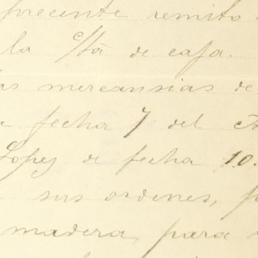 presente remito
la c/ta de caja.
as mercansias de
fecha 7 del
Lopez de fecha 10.
sus ordenes, p
madera, para